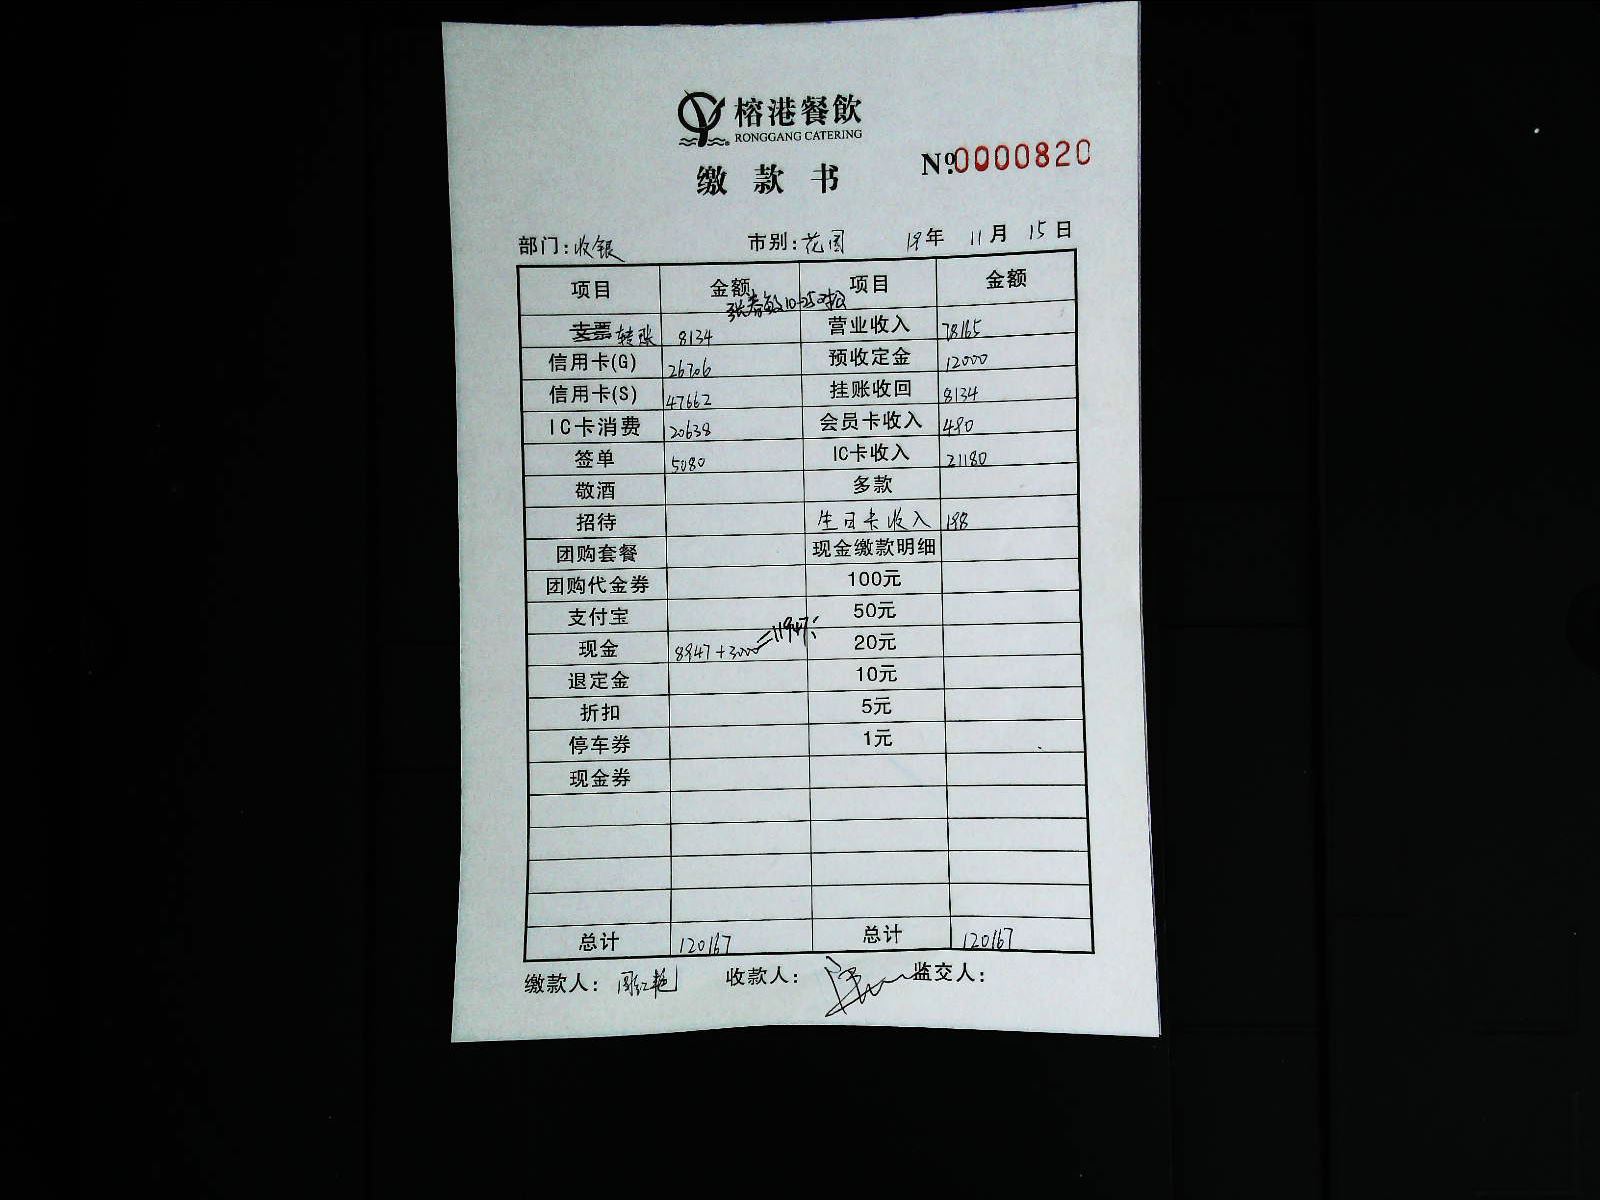 榕港餐飲
RONGGANG CATERING
缴款书
Nº.0000820
部门:收银 市别:花园 19年 11月 15日
项目 金额 项目 金额
10-25
支票 转账 8134 营业收入 78165
信用卡(G) 26706 预收定金 12000
信用卡(S) 47662 挂账收回 8134
IC卡消费 20638 会员卡收入 490
签单 5080 IC卡收入 21180
敬酒 多款
招待 生日卡收入 198
团购套餐 现金缴款明细
团购代金券 100元
支付宝 50元
现金 8947+3000=11947 20元
退定金 10元
折扣 5元
停车券 1元
现金券
总计 120167 总计 120167
缴款人: 收款人: 监交人: